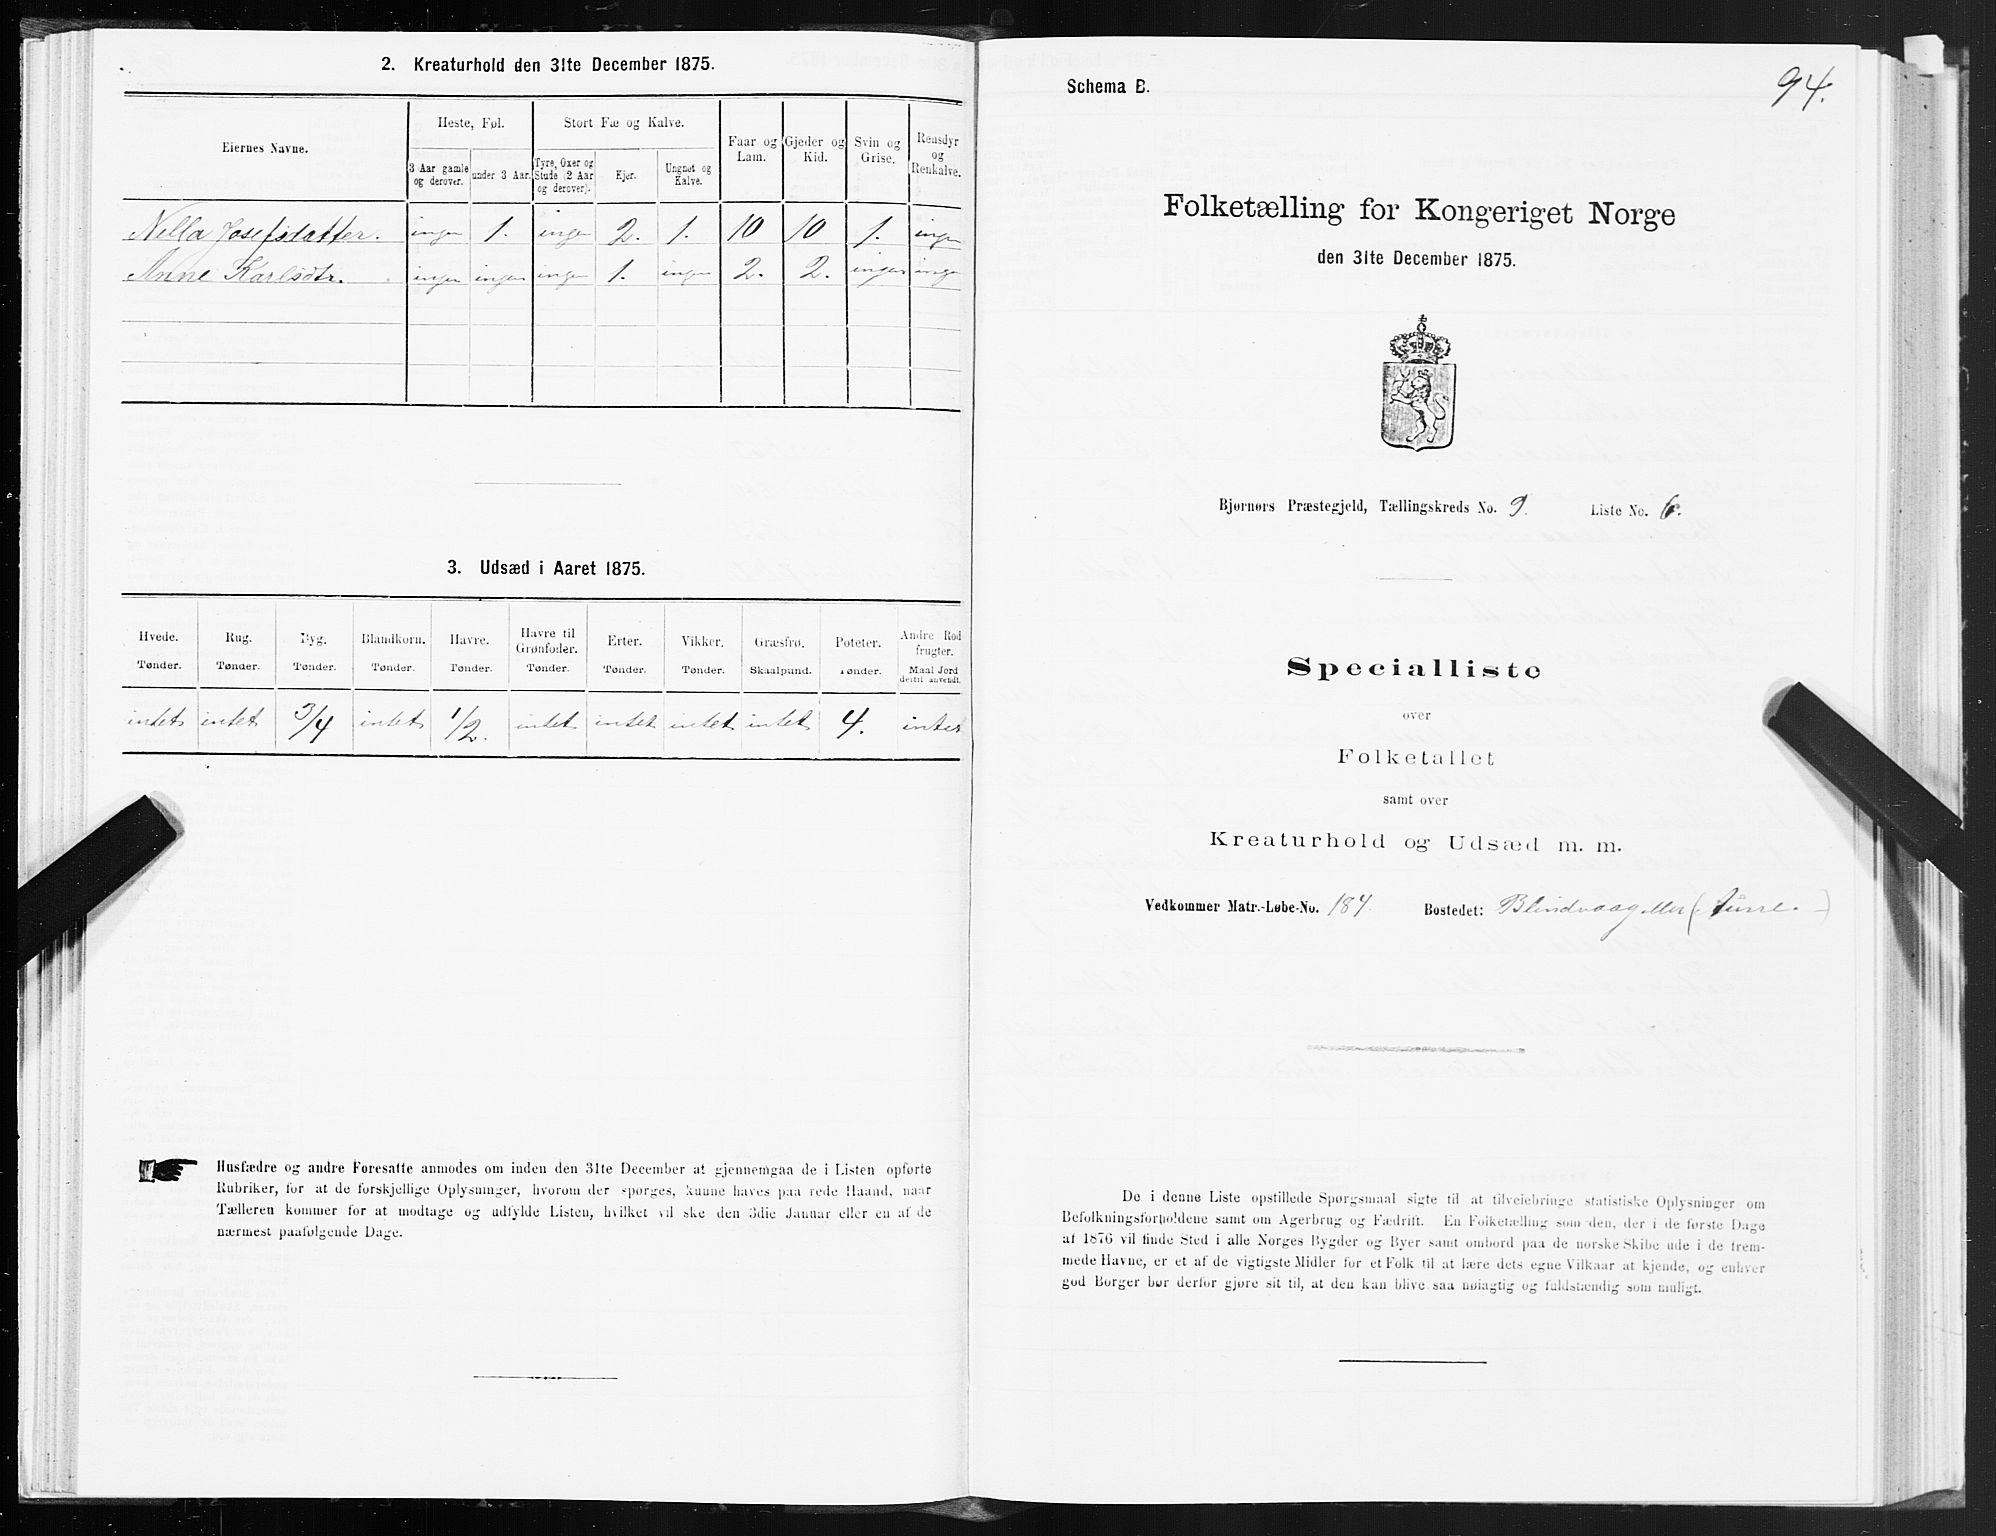 2. Kreaturhold den 31te December 1875.
Eiernes Navne.
Heste, Føl.
Stort Fæ og Kalve.
Faar og Lam.
Gjeder og Kid.
Svin og Grise.
Rensdyr og Renkalve.
3 Aar gamle og derover.
under 3 Aar.
Tyre, Oxer og Stude (2 Aar og derover).
Kjør.
Ungnøt og Kalve.
Nella Josefsdatter. ingen 1. ingen 2. 1. 10 10 1. ingen
Anne Karlsdtr. ingen ingen ingen 1. ingen 2. 2. ingen ingen
3. Udsæd i Aaret 1875.
Hvede. Rug. Byg. Blandkorn. Havre. Havre til Grønfoder. Erter. Vikker. Græsfrø. Poteter. Andre Rodfrugter.
Tønder. Tønder. Tønder. Tønder. Tønder. Tønder. Tønder. Tønder. Skaalpund. Tønder. Maal Jord dertil anvendt.
intet intet 3/4 intet 1/2. intet intet intet intet 4. intet
Husfædre og andre Foresatte anmodes om inden den 31te December at gjennemgaa de i Listen opførte
Rubriker, for at de forskjellige Oplysninger, hvorom der spørges, kunne haves paa rede Haand, naar
Tælleren kommer for at modtage og udfylde Listen, hvilket vil ske den 3die Januar eller en af de
nærmest paafølgende Dage.
Schema B.
94.
Folketælling for Kongeriget Norge
den 31te December 1875.
Bjørnørs Præstegjeld, Tællingskreds No. 9. Liste No. 6.
Specialliste
over
Folketallet
samt over
Kreaturhold og Udsæd m. m.
Vedkommer Matr.-Løbe-No. 184. Bostedet:
De i denne Liste opstillede Spørgsmaal sigte til at tilveiebringe statistiske Oplysninger om
Befolkningsforholdene samt om Agerbrug og Fædrift. En Folketælling som den, der i de første Dage
af 1876 vil finde Sted i alle Norges Bygder og Byer samt ombord paa de norske Skibe ude i de frem-
mede Havne, er et af de vigtigste Midler for et Folk til at lære dets egne Vilkaar at kjende, og enhver
god Borger bør derfor gjøre sit til, at den kan blive saa nøiagtig og fuldstændig som muligt.